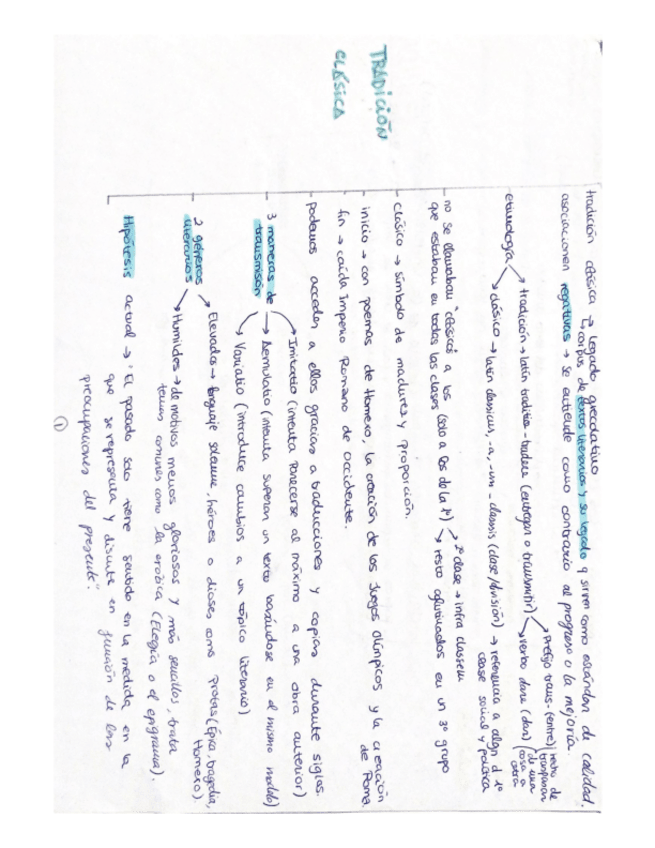 TRADICIÓN
CLÁSICA
tradición clásica → legado grecolatino
↳ corpus de textos literarios y su legado y sirven como estándar de calidad.
asociaciones negativas → se entiende como contrario al progreso o la mejoría.
etimología
tradición → latín traditio - tradere (entregar o transmitir)
Prefijo trans- (entre)
verbo dare (dar)
hecho de
transpasar
de una
cosa a
otra
clásico → latín classicus, -a, -um - classis (clase/división) → referencia a algn d 1º
clase social y política
no se llamaban "clásicos a los (solo a los de la 1ª)
que estaban en todas las clases
2ª clase → infra classem
resto aglutinados en un 3º grupo
clásico → símbolo de madurez y proporción.
inicio → con poemas de Homero, la creación de los Juegos Olímpicos y la creación
de Roma
fin → caída Imperio Romano de occidente.
podemos acceder a ellos gracias a traducciones y copias durante siglos.
3 maneras de
transmisión
Imitatio (intenta parecerse al máximo a una obra anterior)
Aemulatio (intenta superar un texto basándose en el mismo modelo)
Variatio (introduce cambios a un tópico literario)
2 géneros
literarios
Elevados → lenguaje solemne, héroes o dioses como protas (Épica, tragedia,
Homero).
Humildes → de motivos menos gloriosos y más sencillos, trata
temas comunes como la erótica (Elegía o el epigrama).
Hipótesis actual → "El pasado solo tiene sentido en la medida en la
que se representa y discute en función de las
preocupaciones del presente".
1